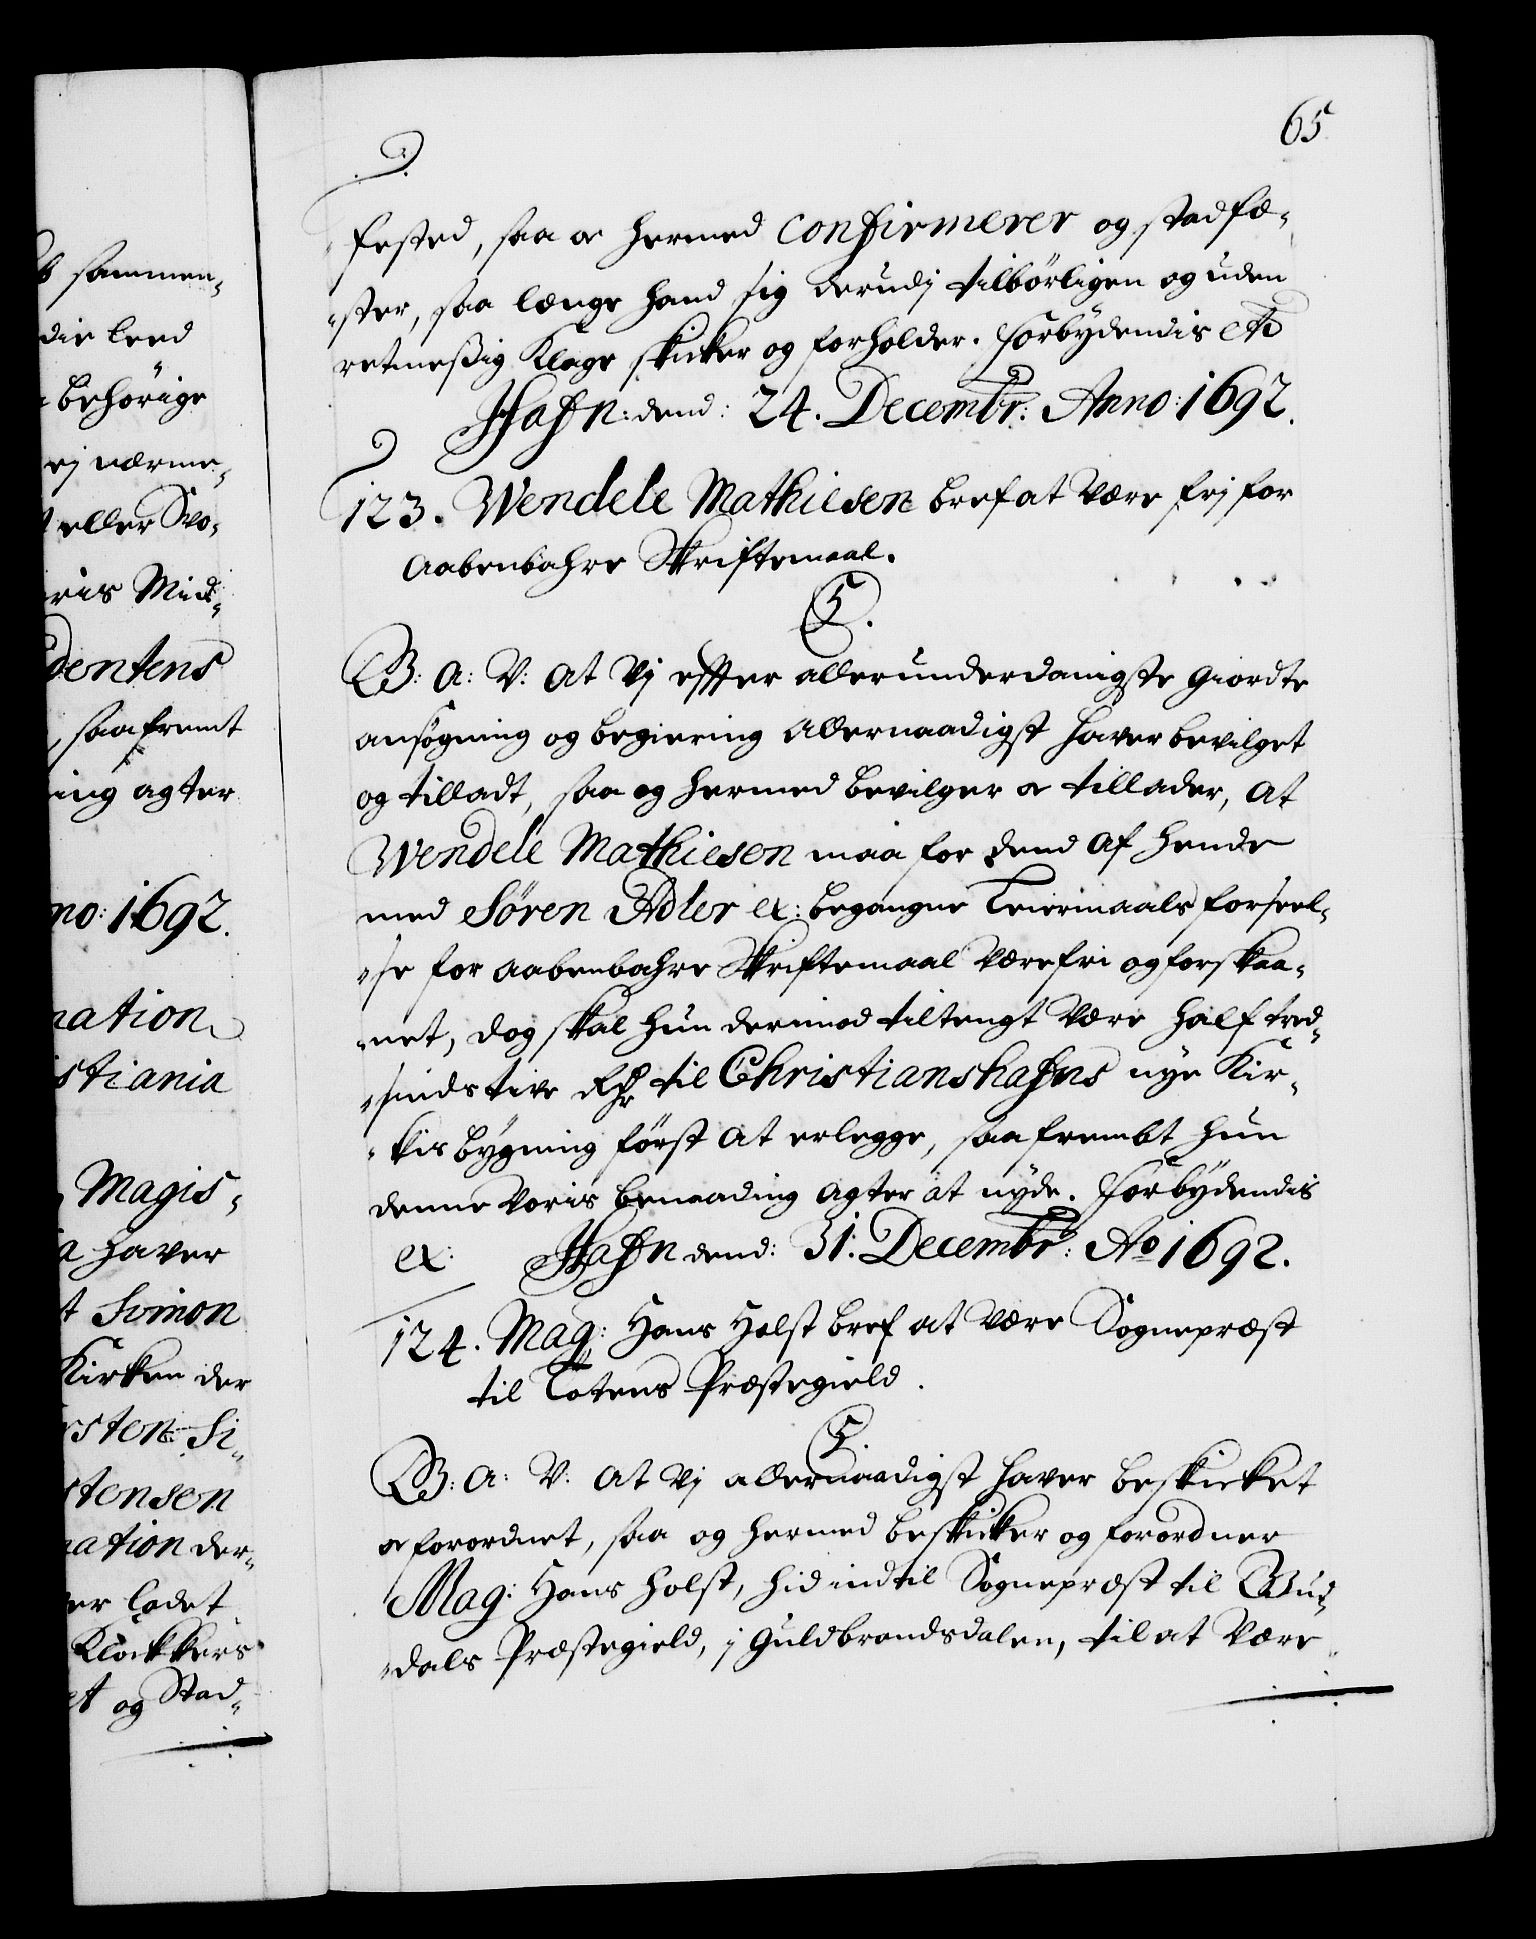 65
fested, saa oc hermed confirmerer og stadfæ-
ster, saa længe hand sig derudj tilbörligen og uden
retmessig Klage skicker og forholder. Forbydendis etc
Hafn: dend: 24. Decembr: Anno: 1692.
123. Wendele Mathiesen bref at være frj for
aabenbahre Skriftemaal.
C5.
G: A: V: at Vj effter allerunderdanigste giordte
ansøgning og begiering allernaadigst haver bevilget
og tilladt, saa og hermed bevilger oc tillader, at
Wendele Mathiesen maa for dend af hende
med Søren Adler ex: begangne Leiermaals forseel-
se for aabenbahre Skriftemaal være fri og forskaa-
net, dog skal hun derimod tiltengt være half tred-
sindstive Rdr til Christianshafns nye Kir-
kis bygning först at erlegge, saafrembt hun
denne voris benaading agter at nyde. Forbydendis
ex: Hafn dend: 31: Decembr: Ao 1692.
124. Mag: Hans Holst bref at være Sognepræst
til Totens Præstegield.
C5.
G: A: V: at Vj allernaadigst haver beskicket
oc forordnet, saa og hermed beskicker og forordner
Mag: Hans Holst, hid indtil Sognepræst til Gus-
dals Præstegield, j Guldbrandsdalen, til at være
sammen-
die leed
behörige
ej nærme-
eller Svo-
ris Mids-
dentens
, saafremt
ing agter
no: 1692.
nation
stiania
Magis-
a haver
t Simon
Kirken der
rsten Si-
stensen
nation der-
er ladet
Klockkers
et og Stad-